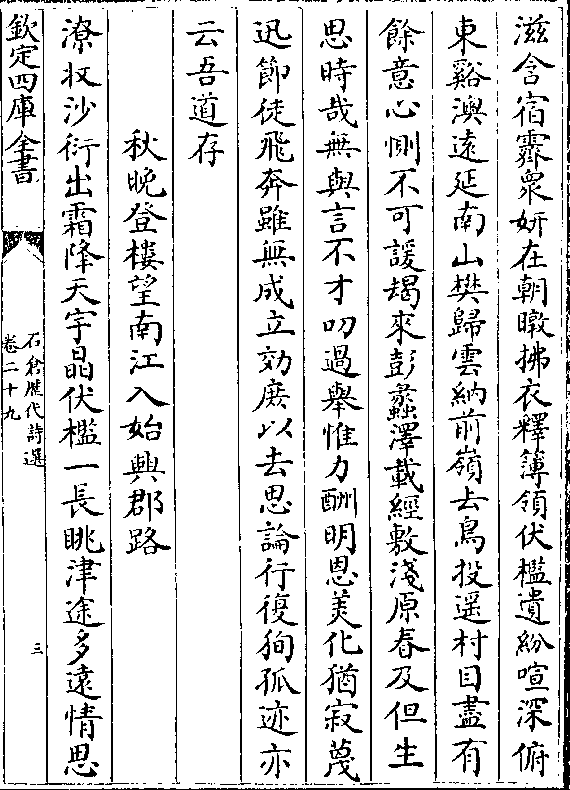 滋含宿霽衆妍在朝暾拂衣釋簿領伏檻遺紛喧深俯
東谿澳遠延南山樊歸雲納前嶺去鳥投遥村目盡有
餘意心惻不可諼朅來彭蠡澤載經敷淺原春及但生
思時哉無與言不才叨過舉惟力酬明恩美化猶寂蔑
迅節徒飛奔雖無成立効庻以去思論行復徇孤迹亦
云吾道存
秋晩登樓望南江入始興郡路
潦收沙衍出霜降天宇晶伏檻一長眺津途多遠情思
欽定四庫全書
石倉歴代詩選
卷二十九
三